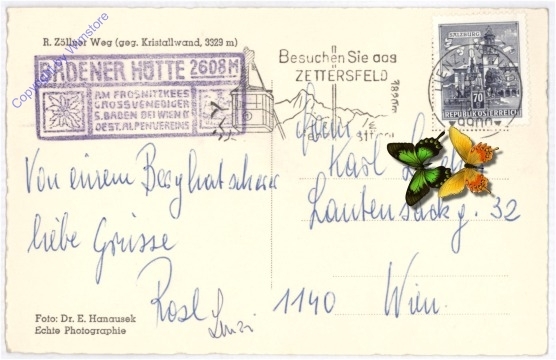 R. Zöllner Weg (geg. Kristallwand, 3329 m)
Copyright by Wamstore
BADENER HÜTTE 2608M
AM FROSNITZKEES
GROSSVENEDIGER
S. BADEN BEI WIEN D.
OEST. ALPENVEREINS
Besuchen Sie das
ZETTERSFELD
SALZBURG
70
REPUBLIK ÖSTERREICH
Von einem
liebe Grüsse
Rosl
Karl
Lautensackg. 32
1140 Wien.
Foto: Dr. E. Hanausek
Echte Photographie